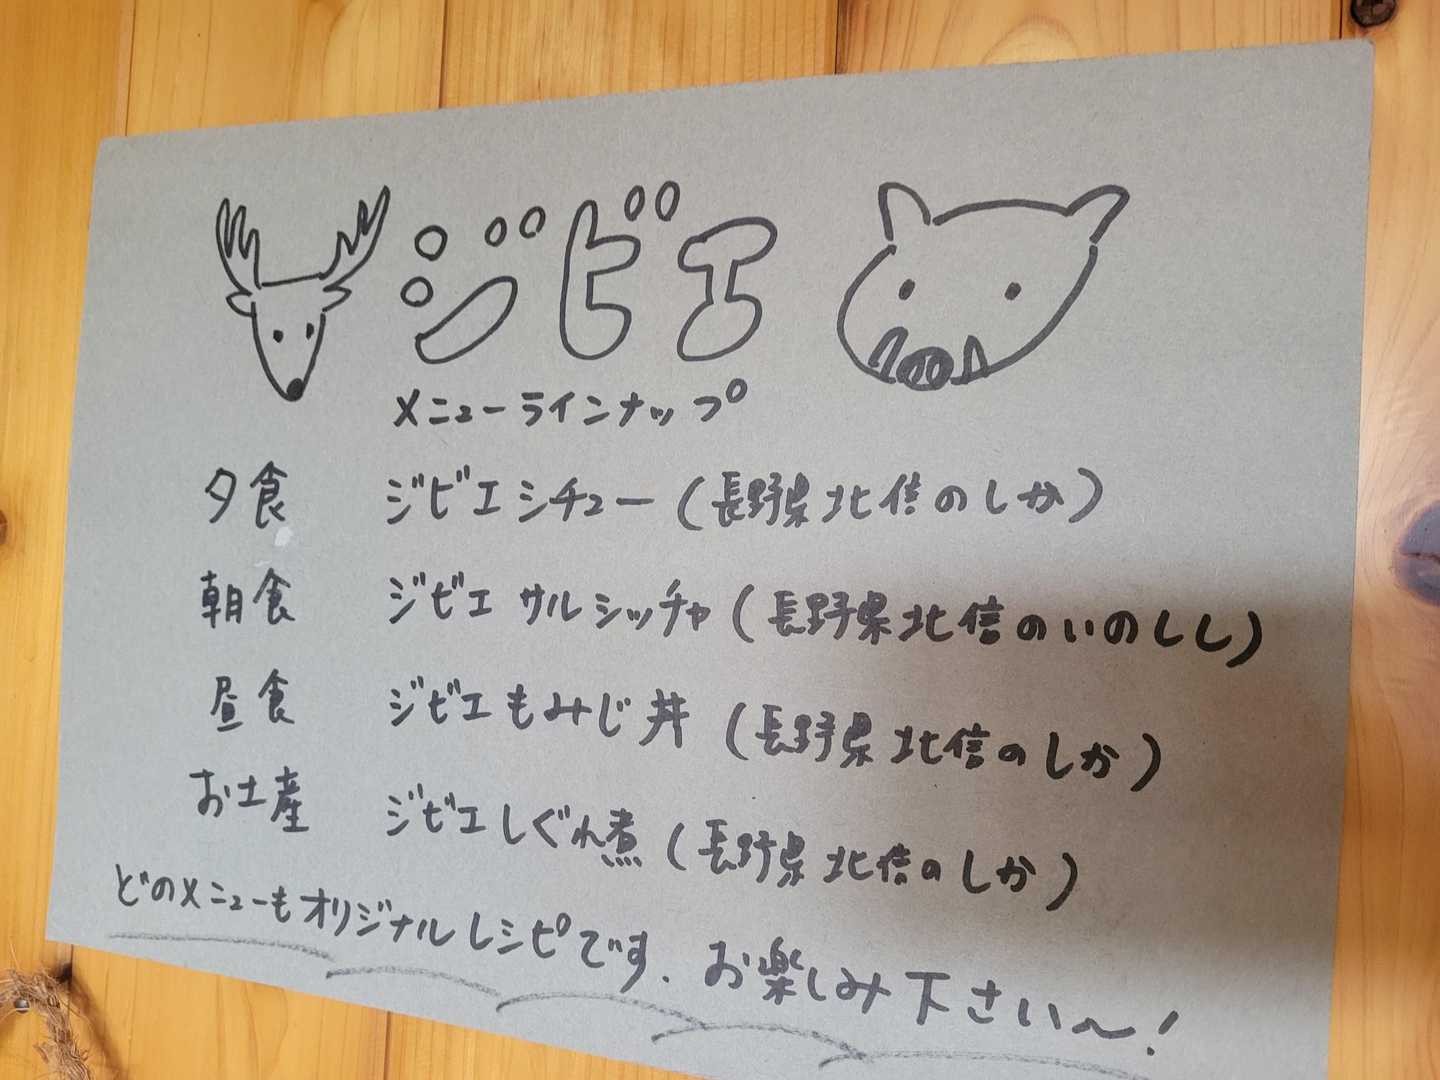 ジビエ
メニューラインナップ
夕食 ジビエシチュー(長野県北信のしか)
朝食 ジビエサルシッチャ(長野県北信のいのしし)
昼食 ジビエもみじ丼(長野県北信のしか)
お土産 ジビエしぐれ煮(長野県北信のしか)
どのメニューもオリジナルレシピです. お楽しみ下さい〜!